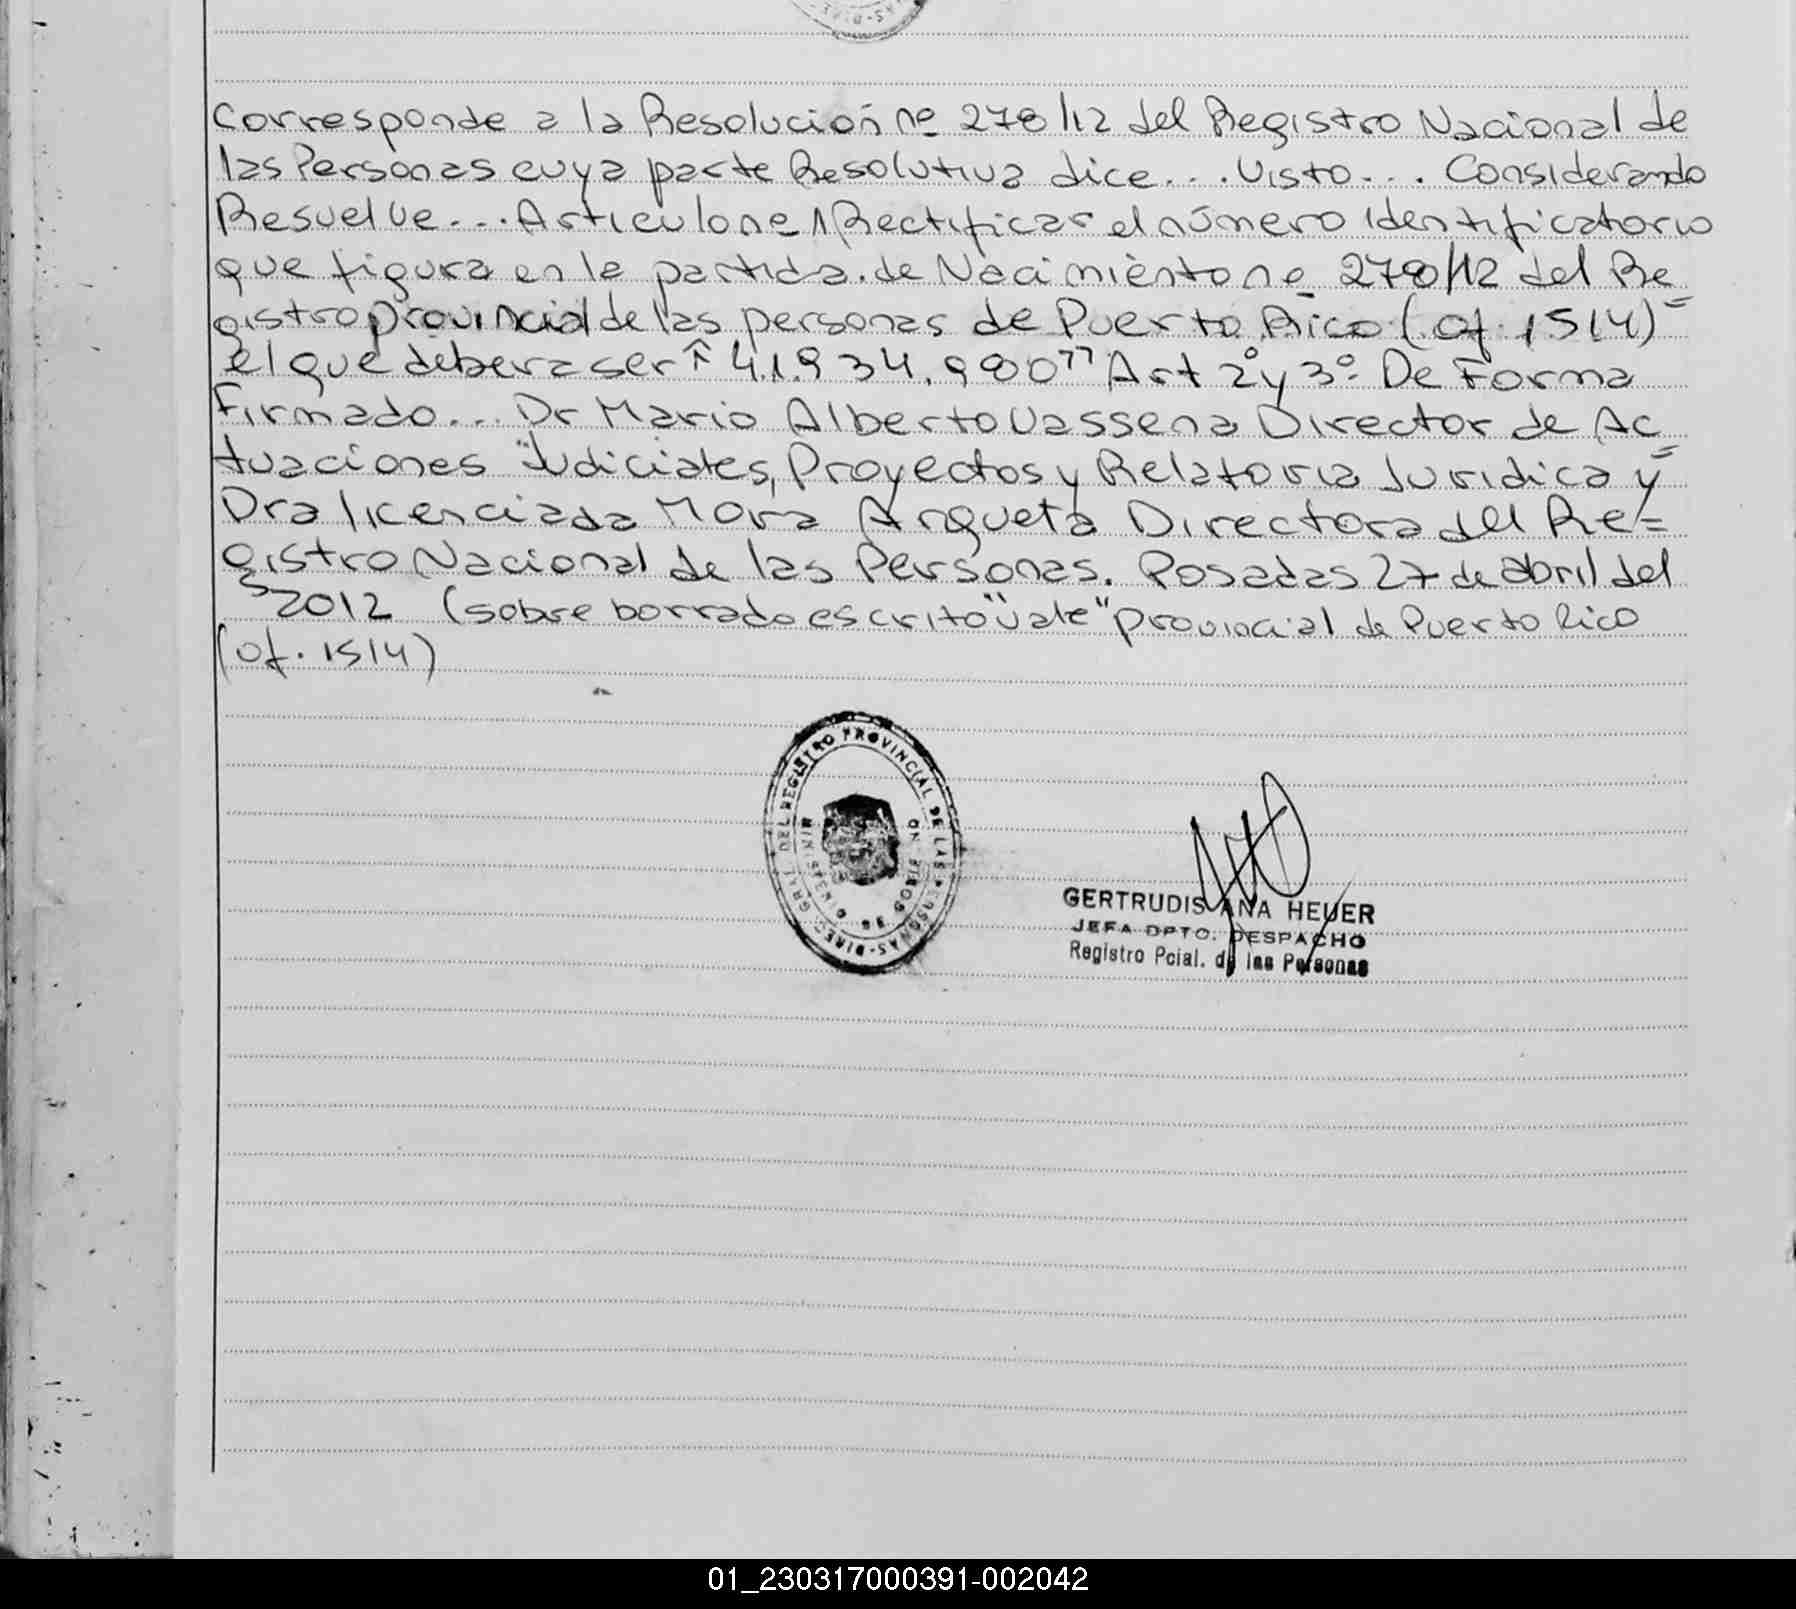 AS-DIRE
Corresponde a la Resolución nº 278/12 del Registro Nacional de
las Personas cuya parte Resolutiva dice... Visto... Considerando
Resuelve... Articulo nº 1 Rectificar el número identificatorio
que figura en la partida de Nacimiento nº 278/12 del Re
gistro provincial de las personas de Puerto Rico (Of. 1514) =
el que debera ser "41.934.980" Art 2º y 3º De Forma
Firmado... Dr Mario Alberto Vassena Director de Ac
tuaciones Judiciales, Proyectos y Relatoria Juridica y =
Dra licenciada Mora Arqueta Directora del Re=
gistro Nacional de las Personas. Posadas 27 de abril del
2012 (sobre borrado escrito "vale" provincial de Puerto Rico
(Of. 1514)
DIREC. GRAL. DEL REGISTRO PROVINCIAL DE LAS PERSONAS
GERTRUDIS ANA HEUER
JEFA DPTO. DESPACHO
Registro Pcial. de las Personas
01_230317000391-002042